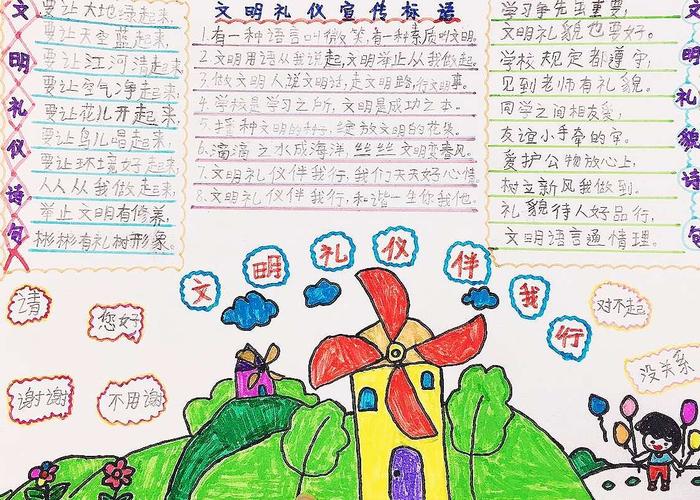 文明礼仪诗句
要让大地绿起来,
要让天空蓝起来,
要让江河清起来
要让空气净起来,
要让花儿开起来,
要让鸟儿唱起来,
要让环境好起来,
人人从我做起来,
举止文明有修养,
彬彬有礼树形象。
文明礼仪宣传标语
1.有一种语言叫微笑,有一种素质叫文明。
2.文明用语从我说起,文明举止从我做起。
3.做文明人说文明话,走文明路,行文明事。
4.学校是学习之所,文明是成功之本。
5.播种文明的种子,绽放文明的花朵。
6.滴滴之水成海洋,丝丝文明变春风。
7.文明礼仪伴我行,我们天天好心情。
8.文明礼仪伴我行,和谐一生你我他。
学习争先更重要,
文明礼貌也要好。
学校规定都遵守,
见到老师有礼貌。
同学之间相友爱,
友谊小手牵的牢。
爱护公物放心上,
树立新风我做到。
礼貌待人好品行,
文明语言通情理。
明礼貌诗句
文明礼仪伴我行
请
您好
谢谢
不用谢
对不起
没关系